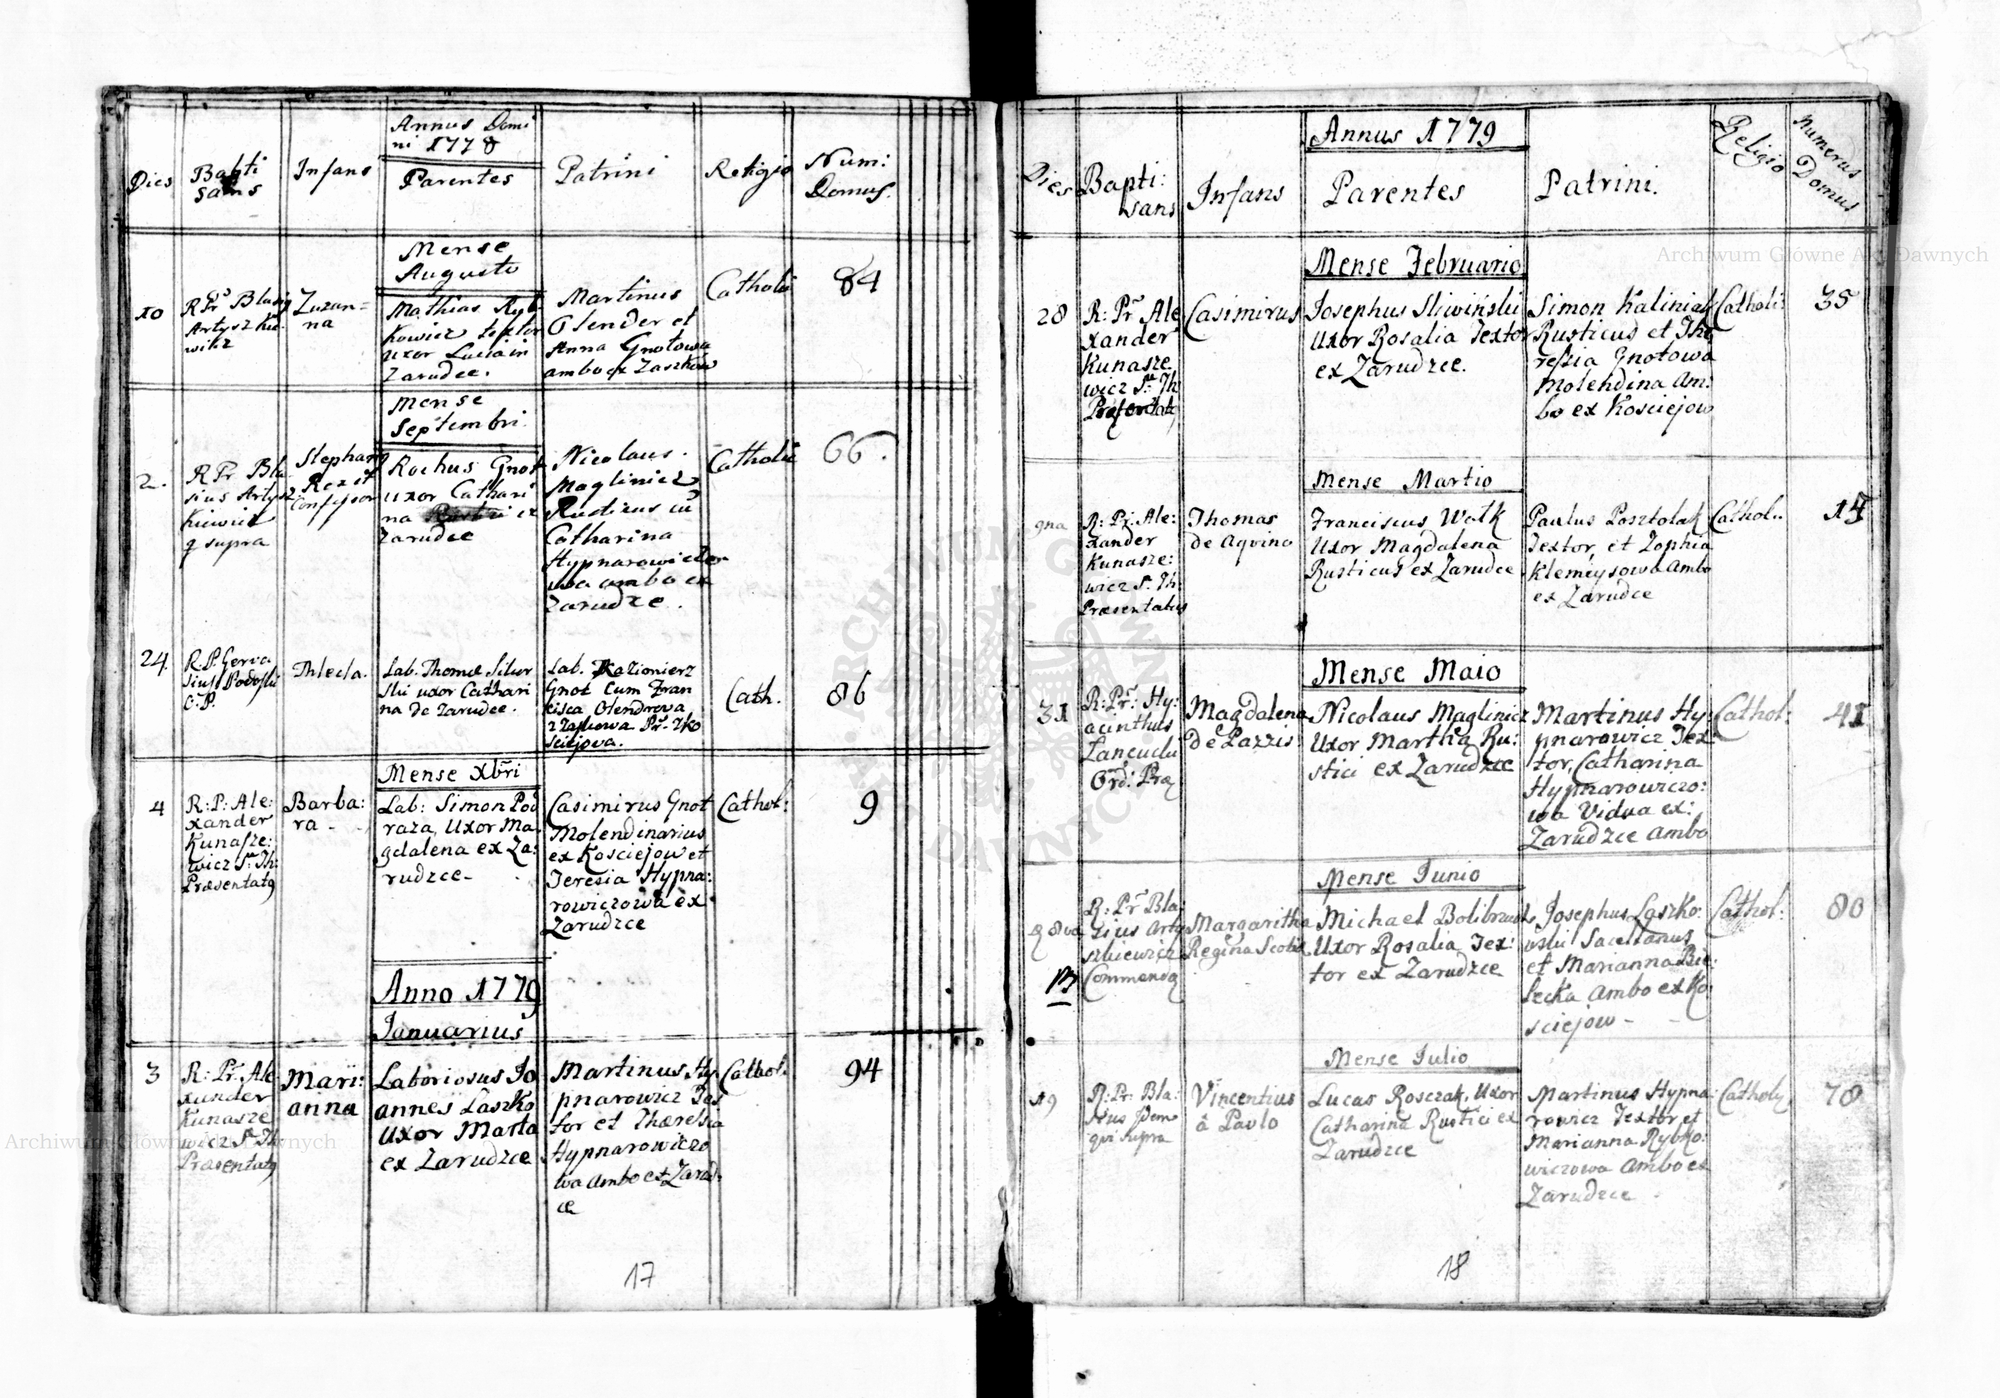 Annus Domi
ni 1778
Dies
Bapti
sans
Infans
Parentes
Patrini
Religio
Num:
Domus.
Mense
Augusto
10
R Pr Blasig
Artyszkie
wicz
Zuzan=
na
Mathias Ryb
kowicz textor
uxor Lucia in
Zarudce.
Martinus
Olender et
Anna Gnotowa
ambo ex Zaszkow
Catholi
84
Mense
Septembri.
2.
R Pr Bla
sius Artysz
kiewicz
q supra
Stephang
Rex et
Confessor
Rochus Gnot
uxor Cathari
na ex
Zarudce
Nicolaus
Magliniez
Rusticus cū
Catharina
Hypnarowiczo
wa ambo ex
Zarudze.
Catholi
66.
24.
R. P. Gerva
sius Podoski
C. P.
Thlecla.
Lab. Thoma Sikor
ski uxor Cathari
na de Zarudce.
Lab. Kazionierz
Gnot Cum Fran
cisca Olendrowa
z Zaszkowa Pr. z Ko
sciejowa.
Cath.
86
Mense Xbri
4
R: P: Ale:
xander
Kunasze:
wicz S. Th:
Præsentatq
Barba:
ra -
Lab: Simon Pod
raza, Uxor Ma:
gdalena ex Za:
rudzce-
Casimirus Gnot
Molendinarius
ex Kosciejow et
Teresia Hypna:
rowiczowa ex
Zarudzce
Cathol:
9
Anno 1779
Ianuarius
3
R: Pr. Ale
xander
Kunasze
wicz S. Th
Præsentatq
Mari:
anna
Laboriosus Io
annes Laszko
Uxor Marta
ex Zarudzce
Martinus Hy
pnarowicz Tex
tor et Thæresia
Hypnarowiczo
wa Ambo ex Zarud:
ce
Cathol:
94
17
Annus 1779
Dies
Bapti:
sans
Infans
Parentes
Patrini.
Religio
Numerus
Domus
Mense Februario
28
R: Pr Ale
xander
Kunasze
wicz S. Th
Præsentatq
Casimirus
Josephus Sliwiński
Uxor Rosalia Textor
ex Zarudzce.
Simon Kaliniak
Rusticus et The
ressia Gnotowa
Molendina Am:
bo ex Kosciejow
Catholi:
35
Mense Martio
9na
R: Pr. Ale:
xander
Kunasze:
wicz S. Th:
Præsentatus
Thomas
de Aquino
Franciscus Wolk
Uxor Magdalena
Rusticus ex Zarudce
Paulus Posztolak
Textor, et Zophia
Klemeysowa Ambo
ex Zarudce
Cathol:
15
Mense Maio
31
R: Pr. Hy:
acinthus
Lancucki
Ord: Præ
Magdalena
de Pazzis
Nicolaus Magliniez
Uxor Martha Ru:
stici ex Zarudzce
Martinus Hy:
pnarowicz Tex:
tor, Catharina
Hypnarowiczo:
wa Vidua ex:
Zarudzce Ambo
Cathol:
41
Mense Iunio
R: Pr Bla:
sius Arty
szkiewicz
Commendq
Margaritha
Regina Scotiæ
Michael Bolibrzuch
Uxor Rosalia Tex:
tor ex Zarudzce
Josephus Laszko:
wski Sacellanus
et Marianna Bie:
lecka Ambo ex Ko
sciejow -
Cathol:
80
Mense Iulio
19
R: Pr. Bla:
qui supra
Vincentius
â Paulo
Lucas Rosczak, Uxor
Catharina Rustici ex
Zarudzce
Martinus Hypna:
rowicz Textor, et
Marianna Rybko:
wiczowa Ambo ex
Zarudzce
Catholi
78
18
Archiwum Główne Akt Dawnych
Archiwum Główne Akt Dawnych